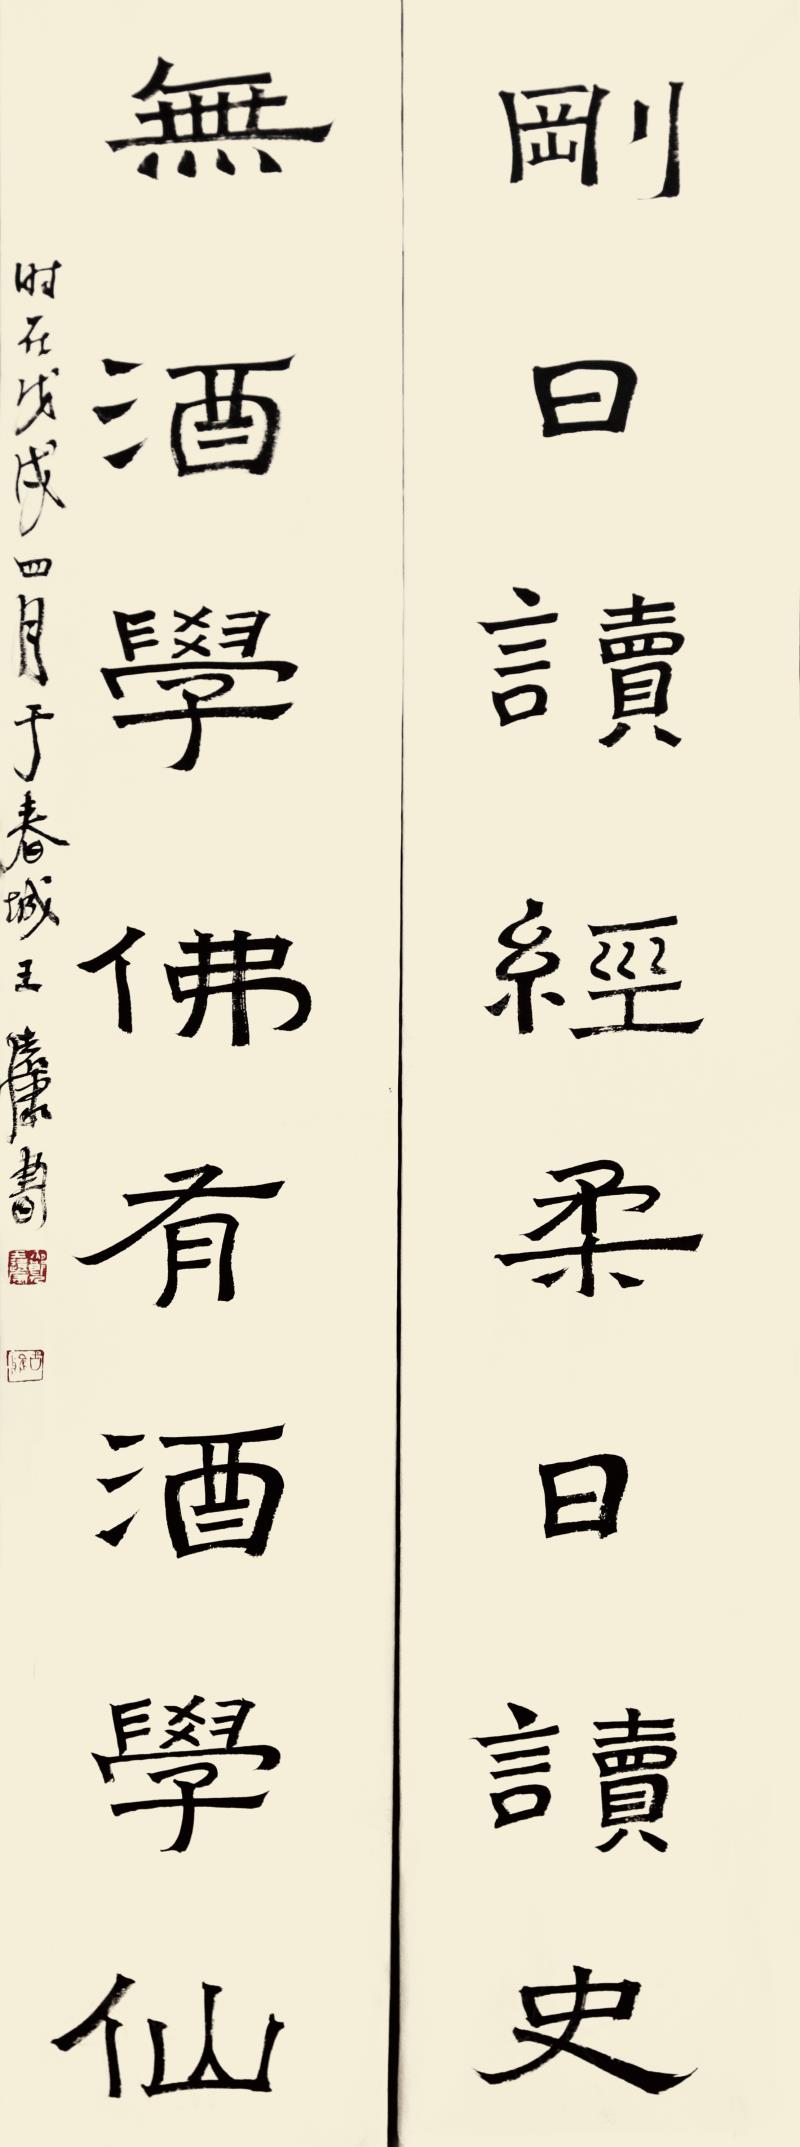 剛日讀經柔日讀史
無酒學佛有酒學仙
时在戊戌四月于春城王書